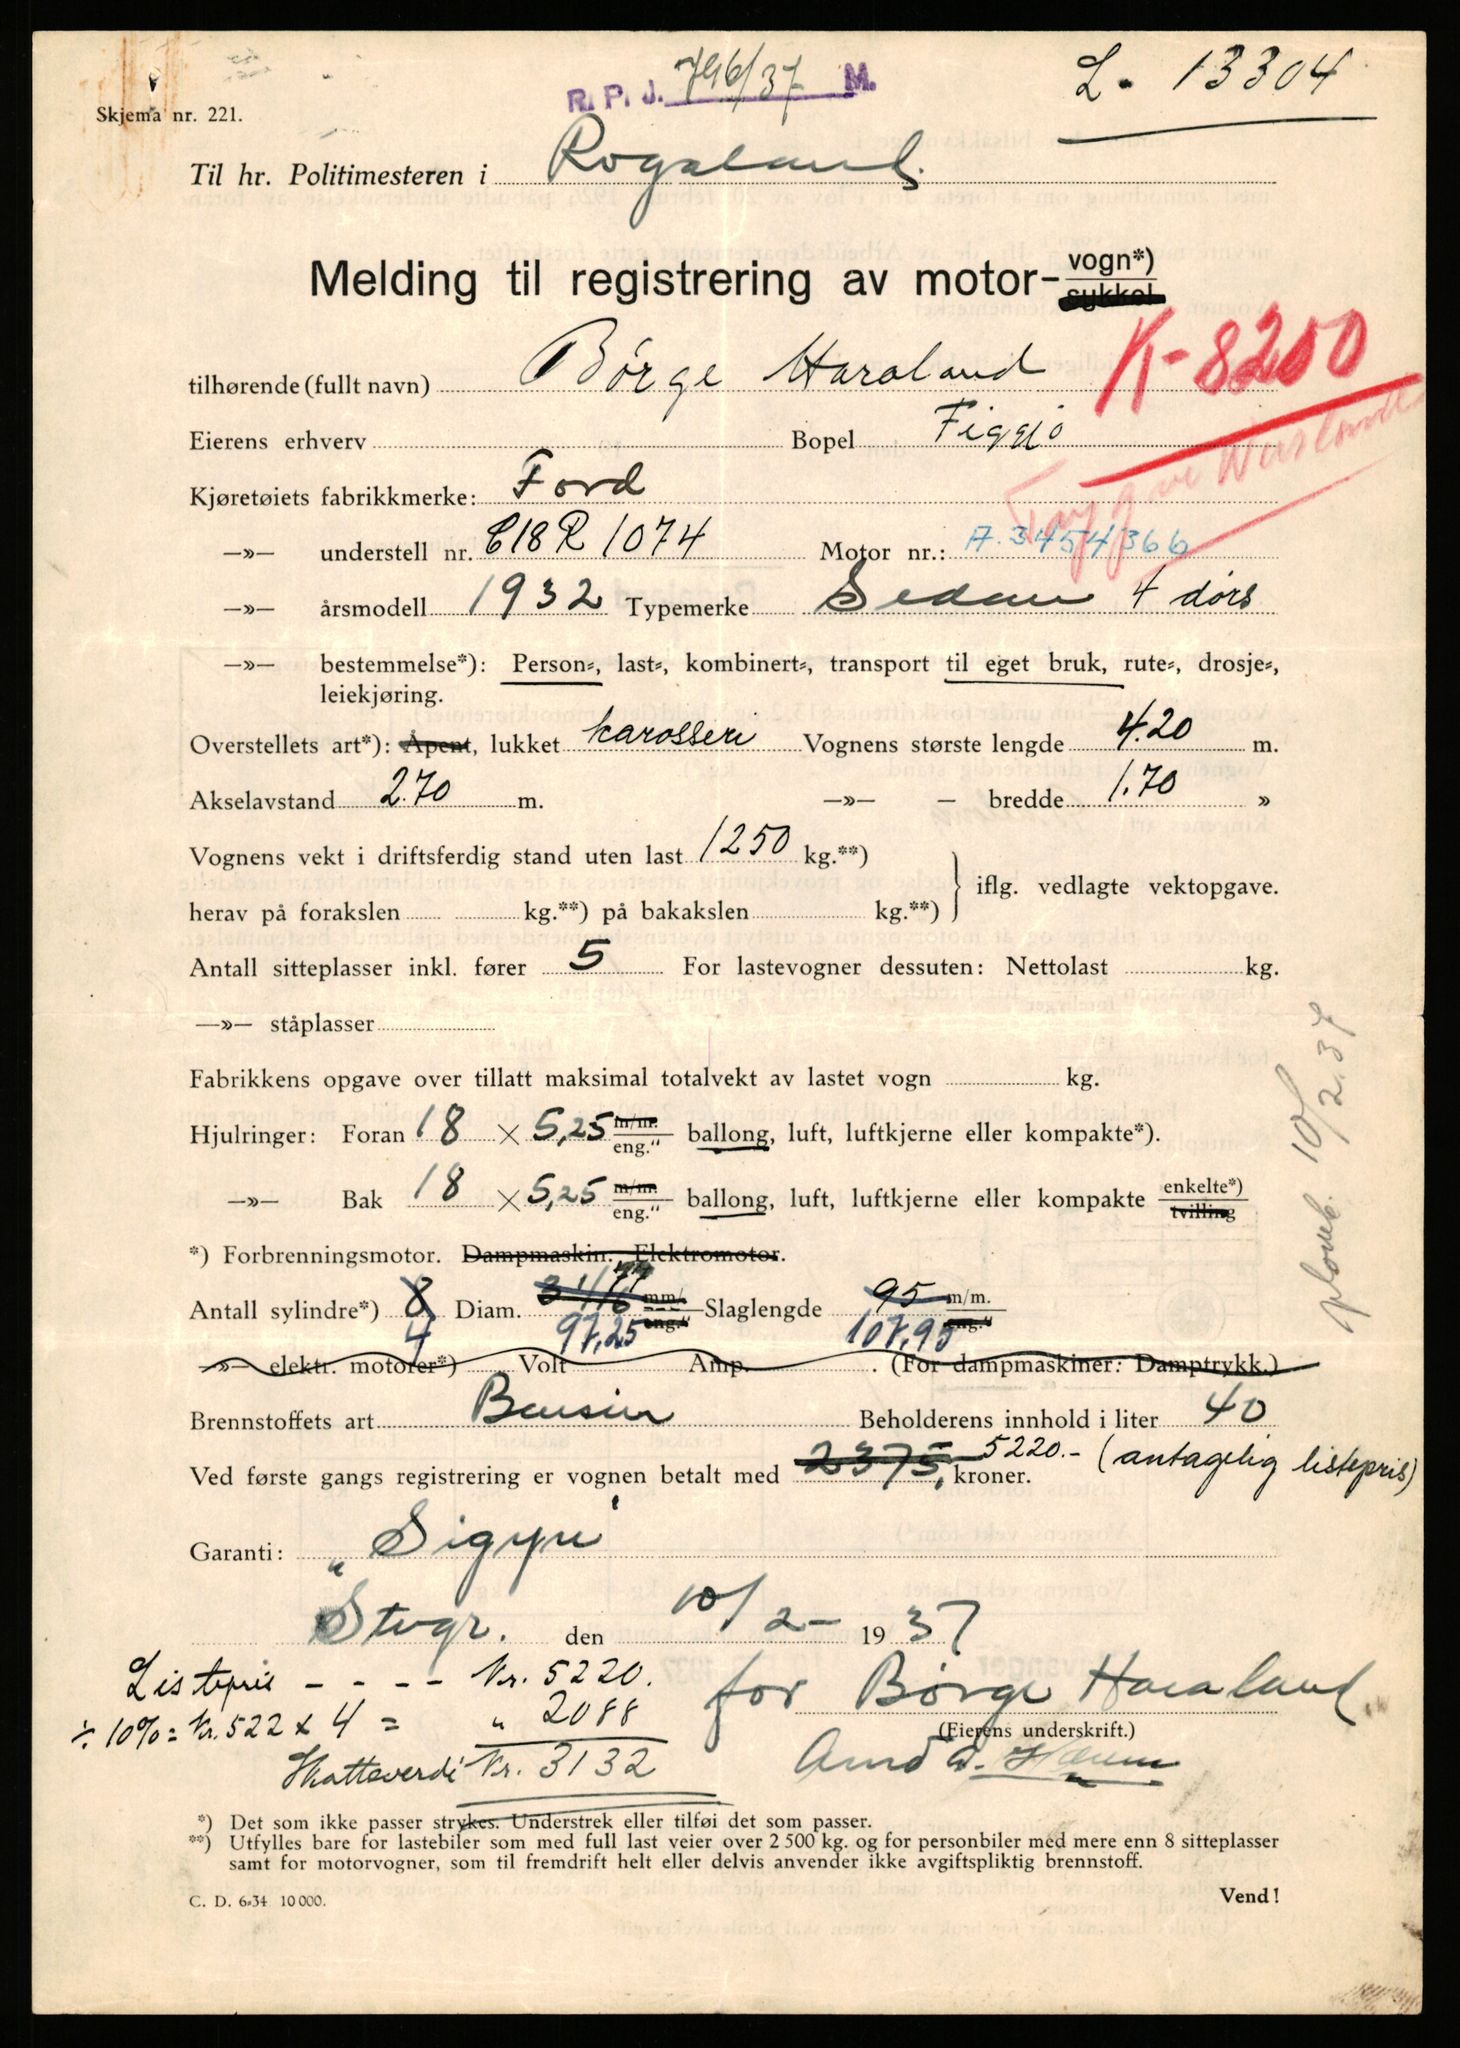 R. P. J. 796/37 M.
L. 13304
Skjema nr. 221.
Til hr. Politimesteren i Rogaland.
Melding til registrering av motor- vogn*)
sykkel
K-8250
tilhørende (fullt navn) Børge Haraland
Eierens erhverv Bopel Figgjo
Kjøretøiets fabrikkmerke: Ford
—»— understell nr. C18R 1074 Motor nr.: A. 3454366
—»— årsmodell 1932 Typemerke Sedan 4 dørs
—»— bestemmelse*): Person-, last-, kombinert-, transport til eget bruk, rute-, drosje-,
leiekjøring.
Overstellets art*): Åpent, lukket karosseri Vognens største lengde 4.20 m.
Akselavstand 2.70 m. —»— — bredde 1.70 »
Vognens vekt i driftsferdig stand uten last 1250 kg.**)
herav på forakslen kg.**) på bakakslen kg.**) iflg. vedlagte vektopgave.
Antall sitteplasser inkl. fører 5 For lastevogner dessuten: Nettolast kg.
—»— ståplasser
Fabrikkens opgave over tillatt maksimal totalvekt av lastet vogn kg.
Hjulringer: Foran 18 × 5,25 m/m. eng." ballong, luft, luftkjerne eller kompakte*).
—»— Bak 18 × 5,25 m/m. eng." ballong, luft, luftkjerne eller kompakte enkelte*) tvilling
plomb. 10/2.37
*) Forbrenningsmotor. Dampmaskin. Elektromotor.
Antall sylindre*) 8 Diam. 3 1/16 77 mm/ eng." Slaglengde 95 m/m. eng."
4 97,25 107,95
—»— elektr. motorer*) Volt Amp. . (For dampmaskiner: Damptrykk.)
Brennstoffets art Bensin Beholderens innhold i liter 40
Ved første gangs registrering er vognen betalt med 2375, kroner. 5220.- (antagelig listepris)
Garanti: „Sigyn"
Stvgr. den 10/2- 1937
Listepris - - - - Kr. 5220.
for Børge Haraland
÷ 10% = Kr. 522 x 4 = „ 2088
(Eierens underskrift.)
Skatteverdi Kr. 3132
*) Det som ikke passer strykes. Understrek eller tilføi det som passer.
**) Utfylles bare for lastebiler som med full last veier over 2 500 kg. og for personbiler med mere enn 8 sitteplasser
samt for motorvogner, som til fremdrift helt eller delvis anvender ikke avgiftspliktig brennstoff.
C. D. 6-34 10 000.
Vend!